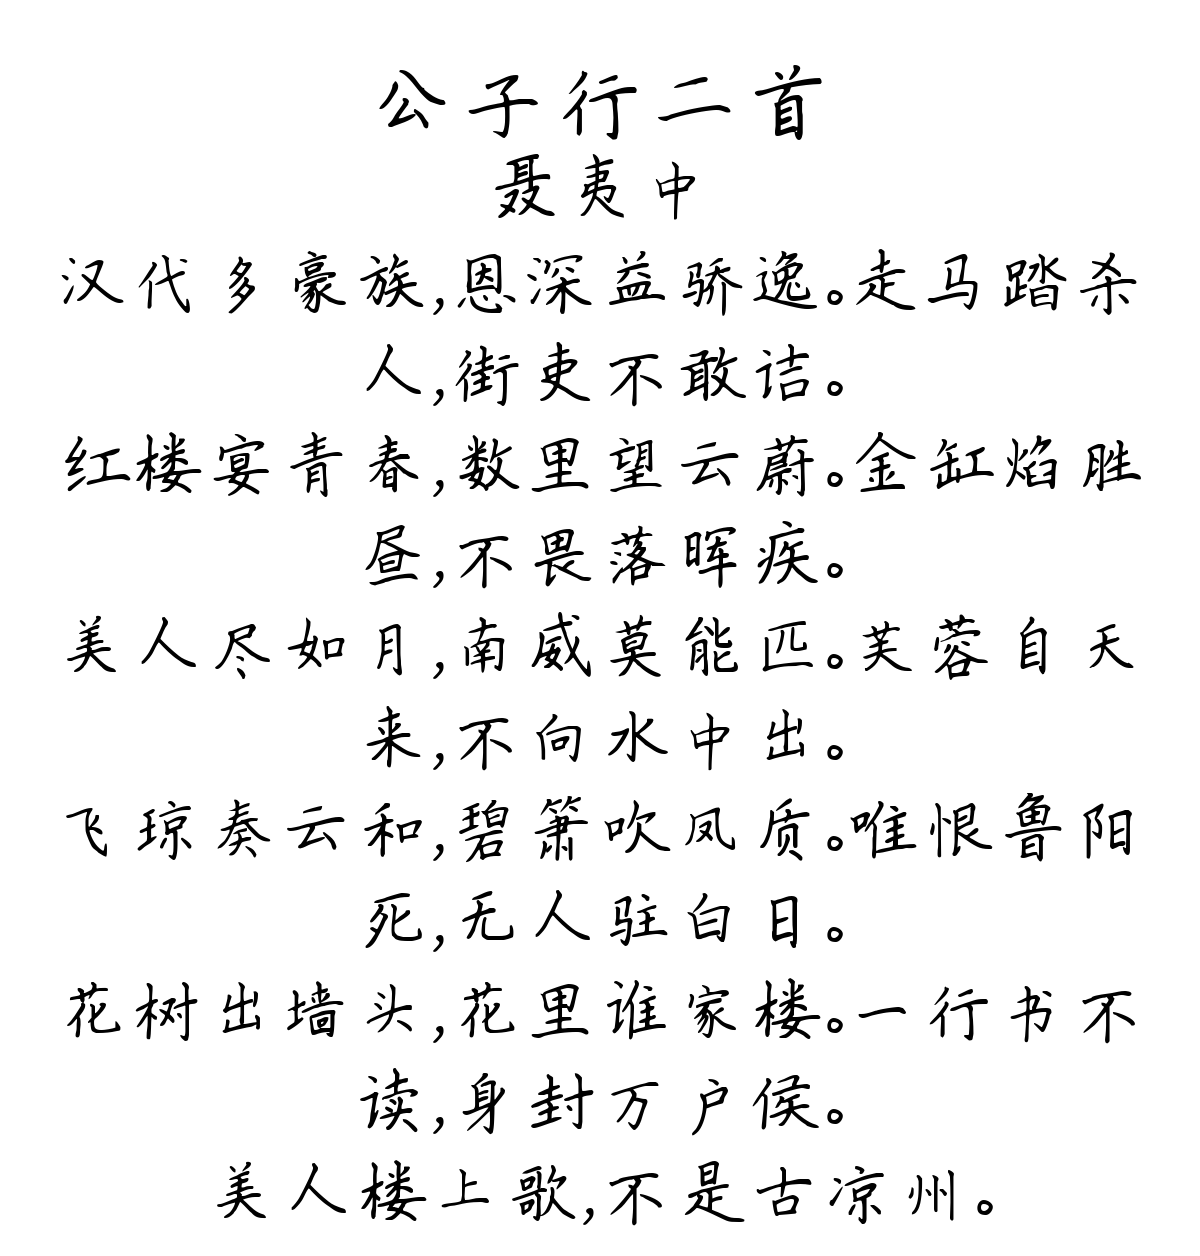 公子行二首
聂夷中
汉代多豪族,恩深益骄逸。走马踏杀
人,街吏不敢诘。
红楼宴青春,数里望云蔚。金缸焰胜
昼,不畏落晖疾。
美人尽如月,南威莫能匹。芙蓉自天
来,不向水中出。
飞琼奏云和,碧箫吹凤质。唯恨鲁阳
死,无人驻白日。
花树出墙头,花里谁家楼。一行书不
读,身封万户侯。
美人楼上歌,不是古凉州。